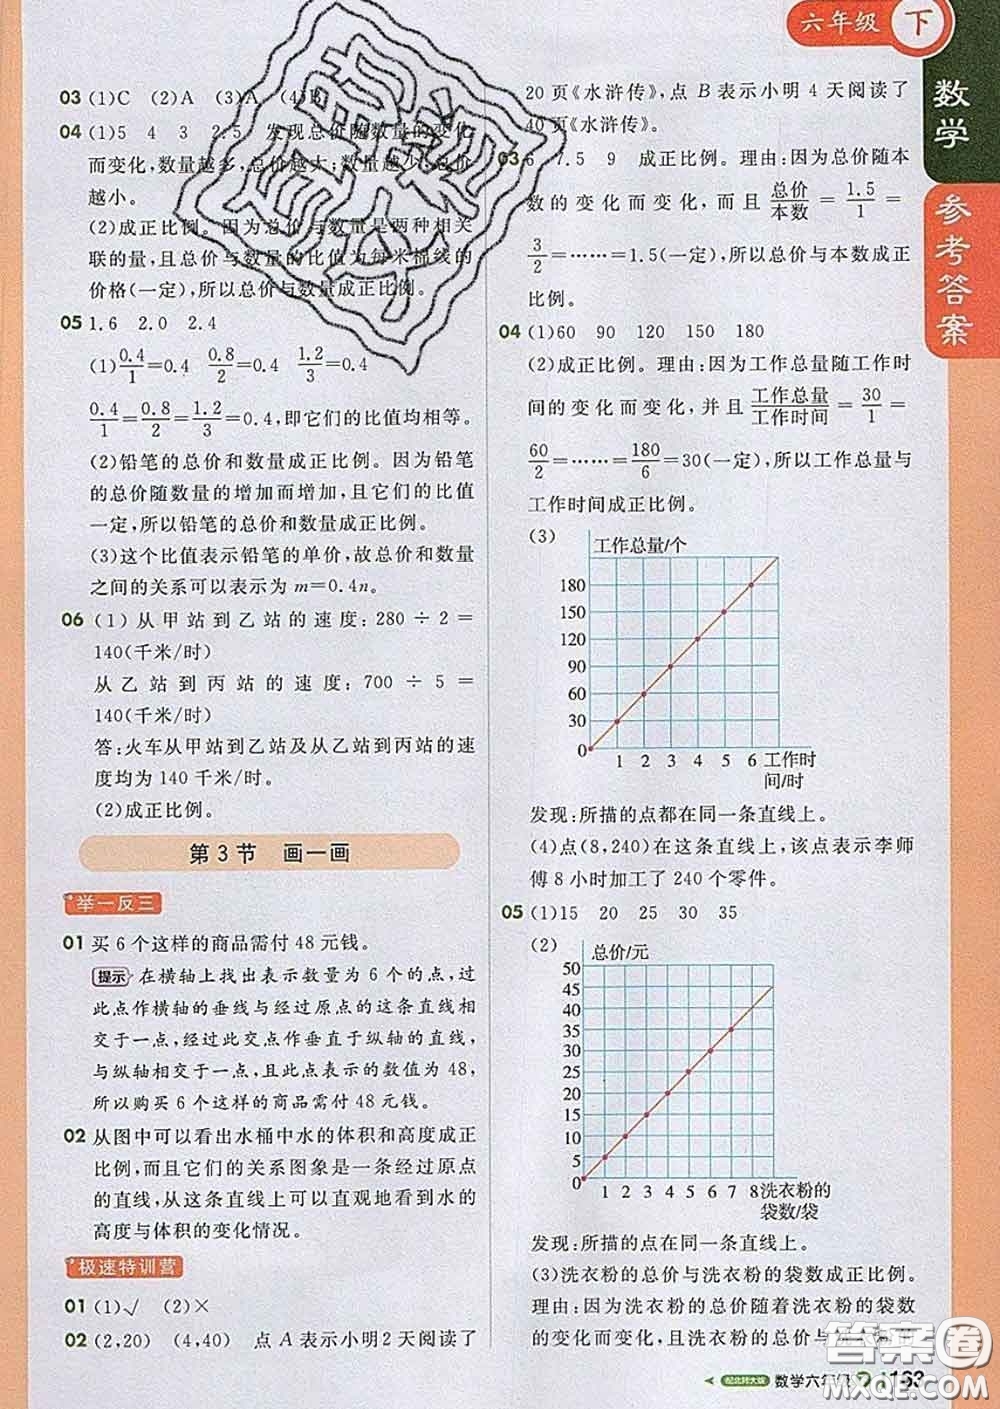 六年级 下
数学
参考答案
03 (1)C (2)A (3)A (4)B
04 (1)5 4 3 2.5 发现总价随数量的变化
而变化,数量越多,总价越大;数量越少,总价
越小。
(2)成正比例。因为总价与数量是两种相关
联的量,且总价与数量的比值为每米棉线的
价格(一定),所以总价与数量成正比例。
05 1.6 2.0 2.4
(1)0.4/1=0.4 0.8/2=0.4 1.2/3=0.4
0.4/1=0.8/2=1.2/3=0.4,即它们的比值均相等。
(2)铅笔的总价和数量成正比例。因为铅笔
的总价随数量的增加而增加,且它们的比值
一定,所以铅笔的总价和数量成正比例。
(3)这个比值表示铅笔的单价,故总价和数量
之间的关系可以表示为 m=0.4n。
06 (1)从甲站到乙站的速度:280÷2=
140(千米/时)
从乙站到丙站的速度:700÷5=
140(千米/时)
答:火车从甲站到乙站及从乙站到丙站的速
度均为 140 千米/时。
(2)成正比例。
第3节 画一画
举一反三
01 买 6 个这样的商品需付 48 元钱。
提示 在横轴上找出表示数量为 6 个的点,过
此点作横轴的垂线与经过原点的这条直线相
交于一点,经过此交点作垂直于纵轴的直线,
与纵轴相交于一点,且此点表示的数值为 48,
所以购买 6 个这样的商品需付 48 元钱。
02 从图中可以看出水桶中水的体积和高度成正
比例,而且它们的关系图象是一条经过原点
的直线,从这条直线上可以直观地看到水的
高度与体积的变化情况。
极速特训营
01 (1)√ (2)×
02 (2,20) (4,40) 点 A 表示小明2天阅读了
20 页《水浒传》,点 B 表示小明 4 天阅读了
40 页《水浒传》。
03 6 7.5 9 成正比例。理由:因为总价随本
数的变化而变化,而且总价/本数=1.5/1=
3/2=……=1.5(一定),所以总价与本数成正
比例。
04 (1)60 90 120 150 180
(2)成正比例。理由:因为工作总量随工作时
间的变化而变化,并且工作总量/工作时间=30/1=
60/2=……=180/6=30(一定),所以工作总量与
工作时间成正比例。
(3)
工作总量/个
180
150
120
90
60
30
0
1 2 3 4 5 6 工作时
间/时
发现:所描的点都在同一条直线上。
(4)点(8,240)在这条直线上,该点表示李师
傅 8 小时加工了 240 个零件。
05 (1)15 20 25 30 35
(2)
总价/元
50
45
40
35
30
25
20
15
10
5
0
1 2 3 4 5 6 7 8 洗衣粉的
袋数/袋
发现:所描的点在同一条直线上。
(3)洗衣粉的总价与洗衣粉的袋数成正比例。
理由:因为洗衣粉的总价随着洗衣粉的袋数
的变化而变化,且洗衣粉的总价与
配北师大版 数学六年级
答案圈
MXQE.COM